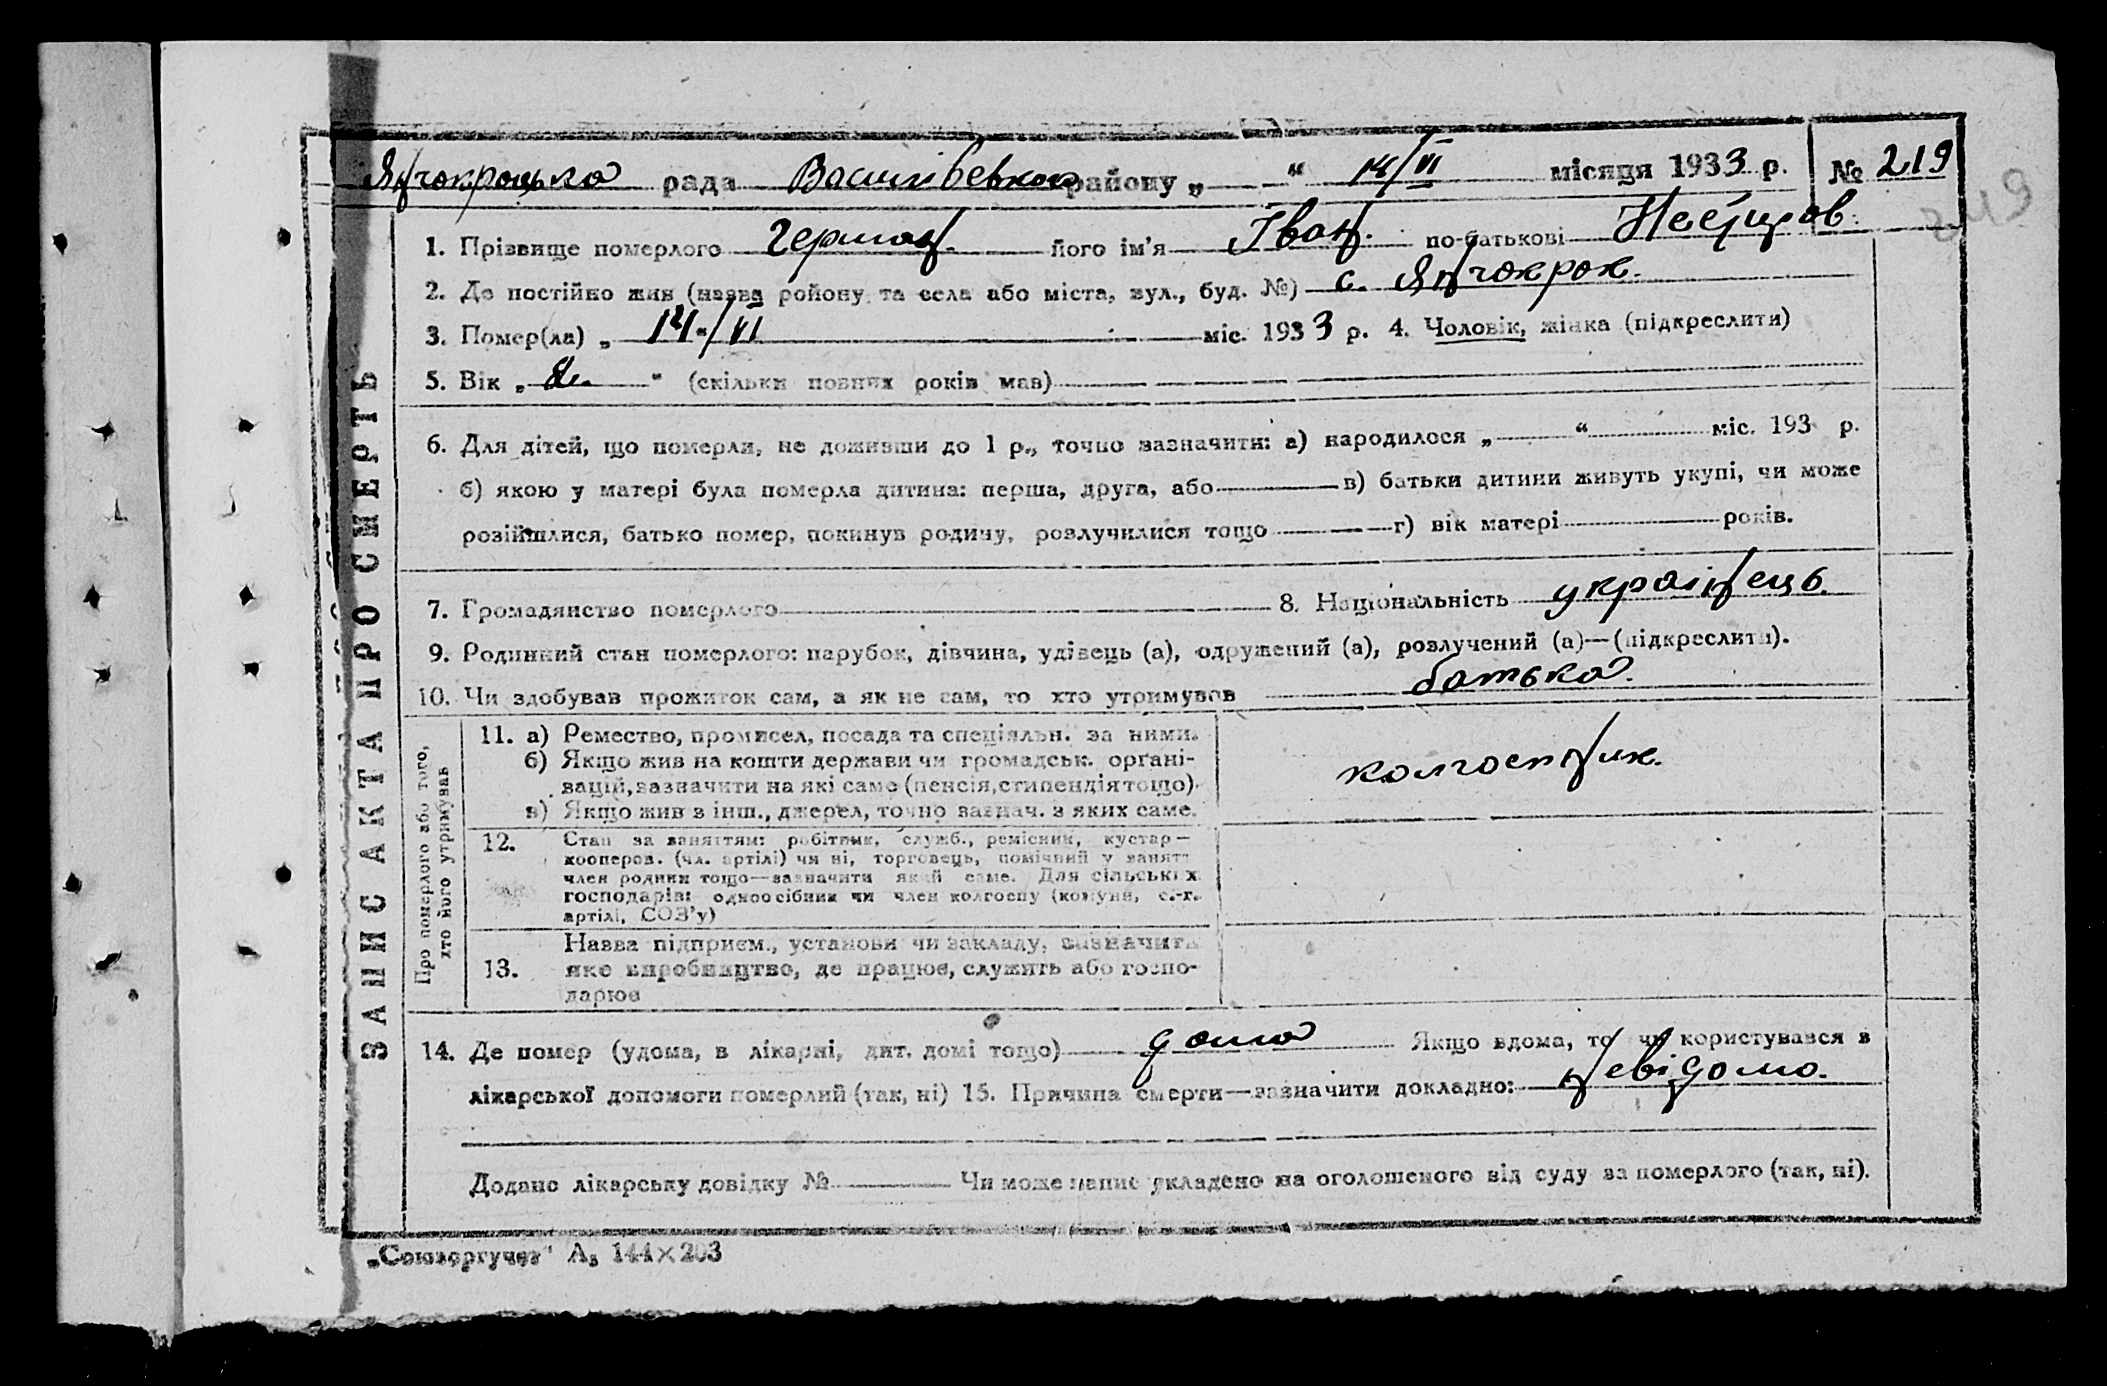 Янчокрацька рада Василівськ району „ “ 14/VI місяця 1933 р. № 219
219
1. Прізвище померлого Герман його ім’я Іван. по-батькові
2. Де постійно жив (назва району та села або міста, вул., буд. №) с. Янчокрок.
3. Помер(ла) „ 14 “/VI міс. 1933 р. 4. Чоловік, жінка (підкреслити)
5. Вік „ “ (скільки повних років мав)
6. Для дітей, що померли, не доживши до 1 р., точно зазначити: а) народилося „ “ міс. 193 р.
б) якою у матері була померла дитина: перша, друга, або в) батьки дитини живуть укупі, чи може
розійшлися, батько помер, покинув родину, розлучилися тощо г) вік матері років.
7. Громадянство померлого 8. Національність українець.
9. Родинний стан померлого: парубок, дівчина, удівець (а), одружений (а), розлучений (а)—(підкреслити).
10. Чи здобував прожиток сам, а як не сам, то хто утримував батько.
ЗАПИС АКТА ПРО СМЕРТЬ
Про померлого або того,
хто його утримував
11. а) Ремество, промисел, посада та спеціяльн. за ними.
б) Якщо жив на кошти держави чи громадськ. орґані-
зацій, зазначити на які саме (пенсія, стипендія тощо).
в) Якщо жив з інш., джерел, точно зазнач. з яких саме.
колгоспник.
12. Стан за заняттям: робітник, служб., ремісник, кустар—
кооперов. (чл. артілі) чи ні, торговець, помічний у занятт
член родини тощо—зазначити який саме. Для сільських
господарів: одноосібник чи член колгоспу (комуни, с.-г.
артілі, СОЗ’у)
Назва підприєм., установи чи закладу, зазначити
13. яке виробництво, де працює, служить або госпо-
дарює
14. Де помер (удома, в лікарні, дит. домі тощо) дома Якщо вдома, то чи користувався з
лікарської допомоги померлий (так, ні) 15. Причина смерти—зазначити докладно: невідомо.
Додано лікарську довідку № Чи може запис укладено на оголошеного від суду за померлого (так, ні).
„Союзоргучет“ А₅ 144×203